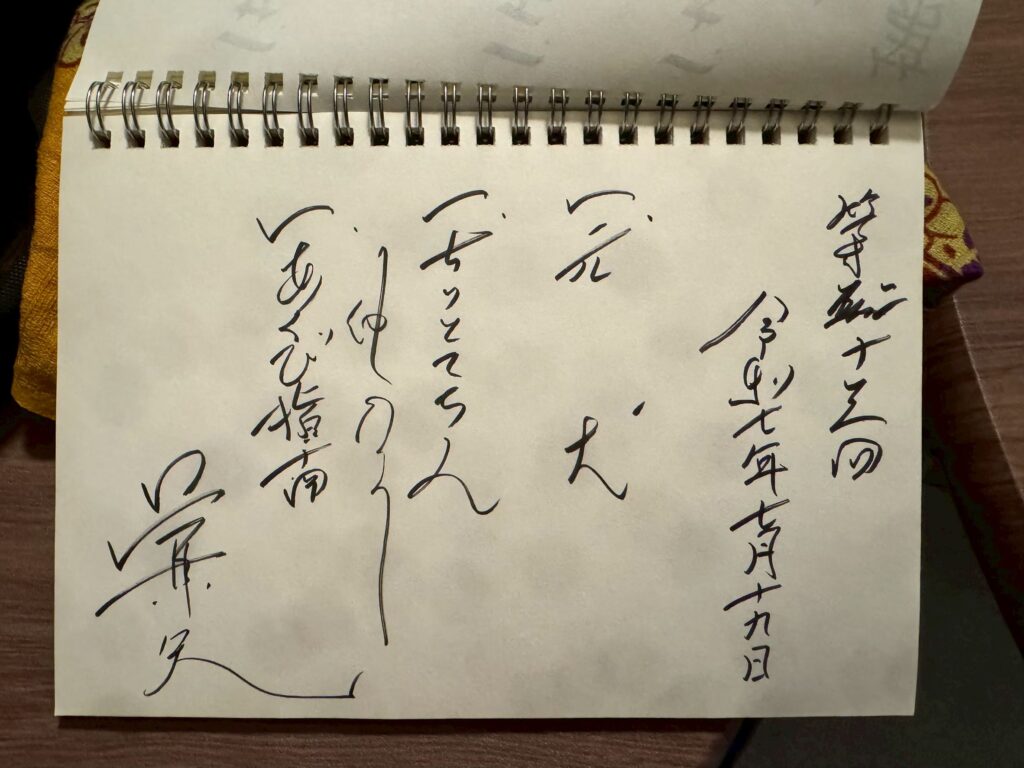 十三回
令和七年七月十九日
一、元犬
一、ちりとてちん
仲入り
一、あくび指南